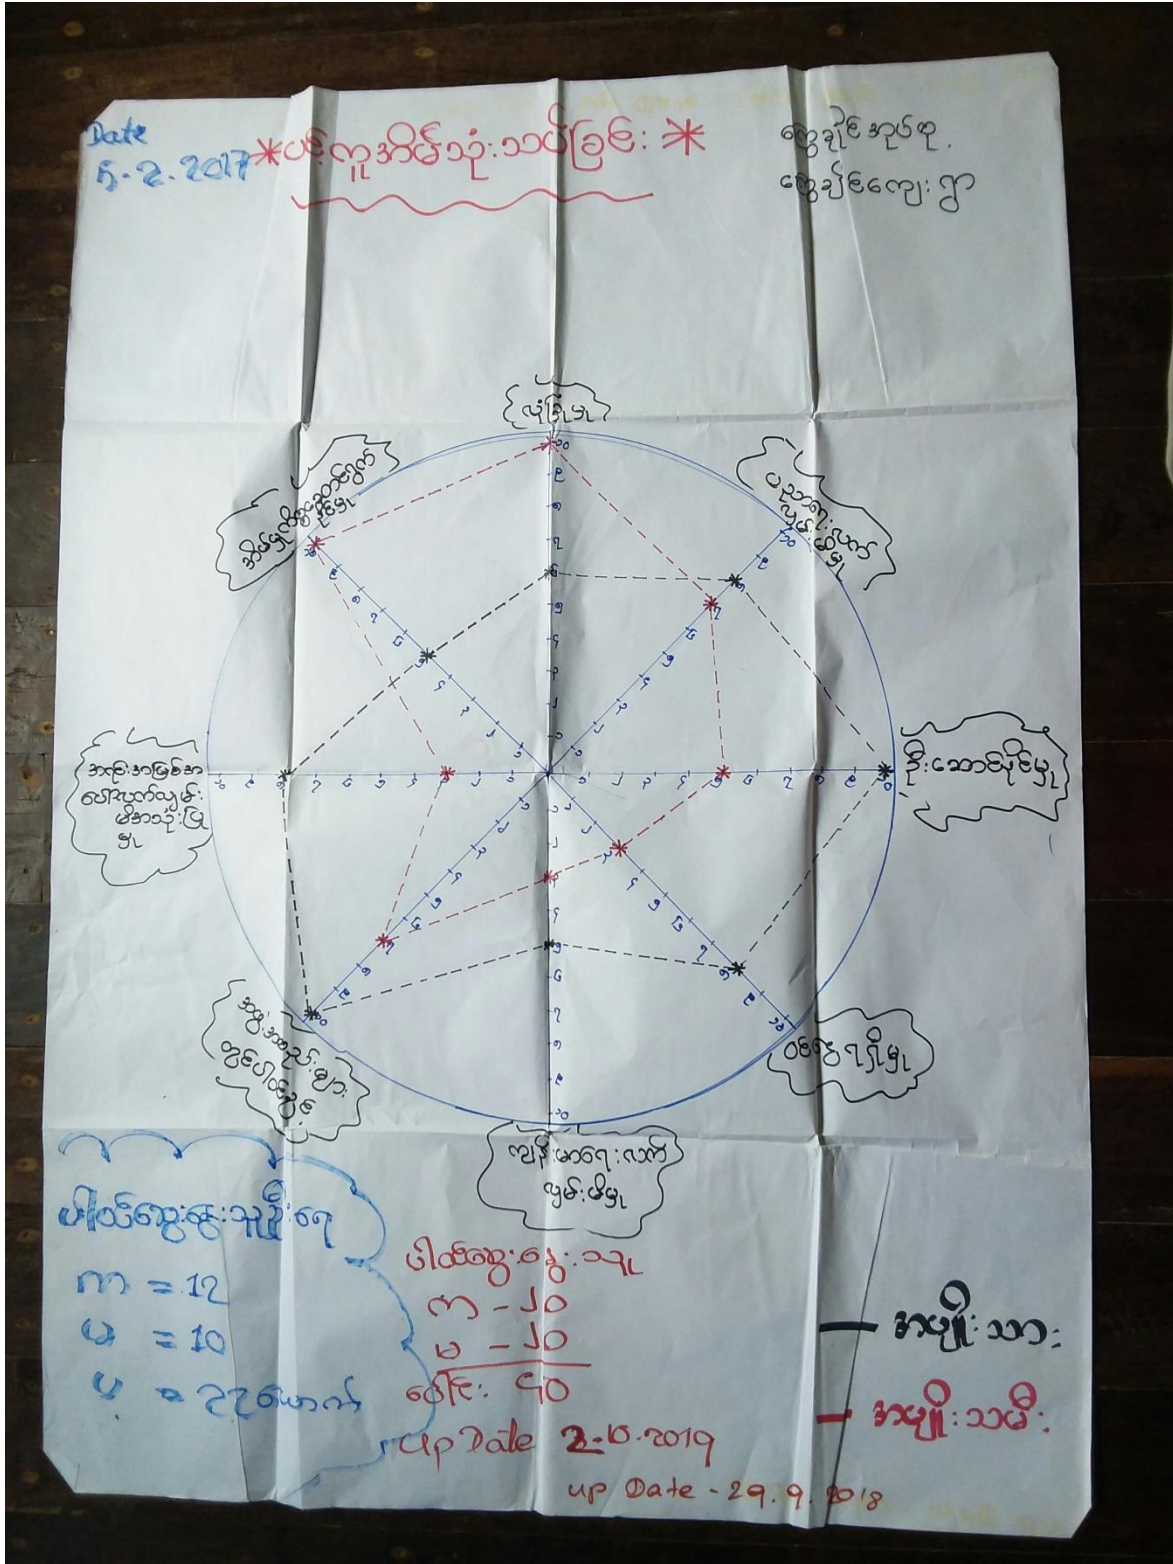 Date
5.2.2017
*ပင့်ကူအိမ်သုံးသပ်ခြင်း*
ကျေးရွာ
လုံခြုံမှု
ပညာရေးလက်
လှမ်းမီမှု
ဦးဆောင်နိုင်မှု
ဝင်ငွေရရှိမှု
ကျန်းမာရေးလက်
လှမ်းမီမှု
အဖွဲ့အစည်းများ
တွင်ပါဝင်မှု
အရင်းအမြစ်အ
ပေါ်လက်လှမ်း
မီအသုံးပြု
မှု
အိမ်မှုကိစ္စဆောင်ရွက်
နိုင်မှု
ပါဝင်ဆွေးနွေးသူဦးရေ
ကျား = 12
မ = 10
ပါဝင်ဆွေးနွေးသူ
ကျား - ၂၀
မ - ၂၀
ပေါင်း ၄၀
up Date 2.10.2019
up Date - 29.9.2018
— အမျိုးသား
— အမျိုးသမီး